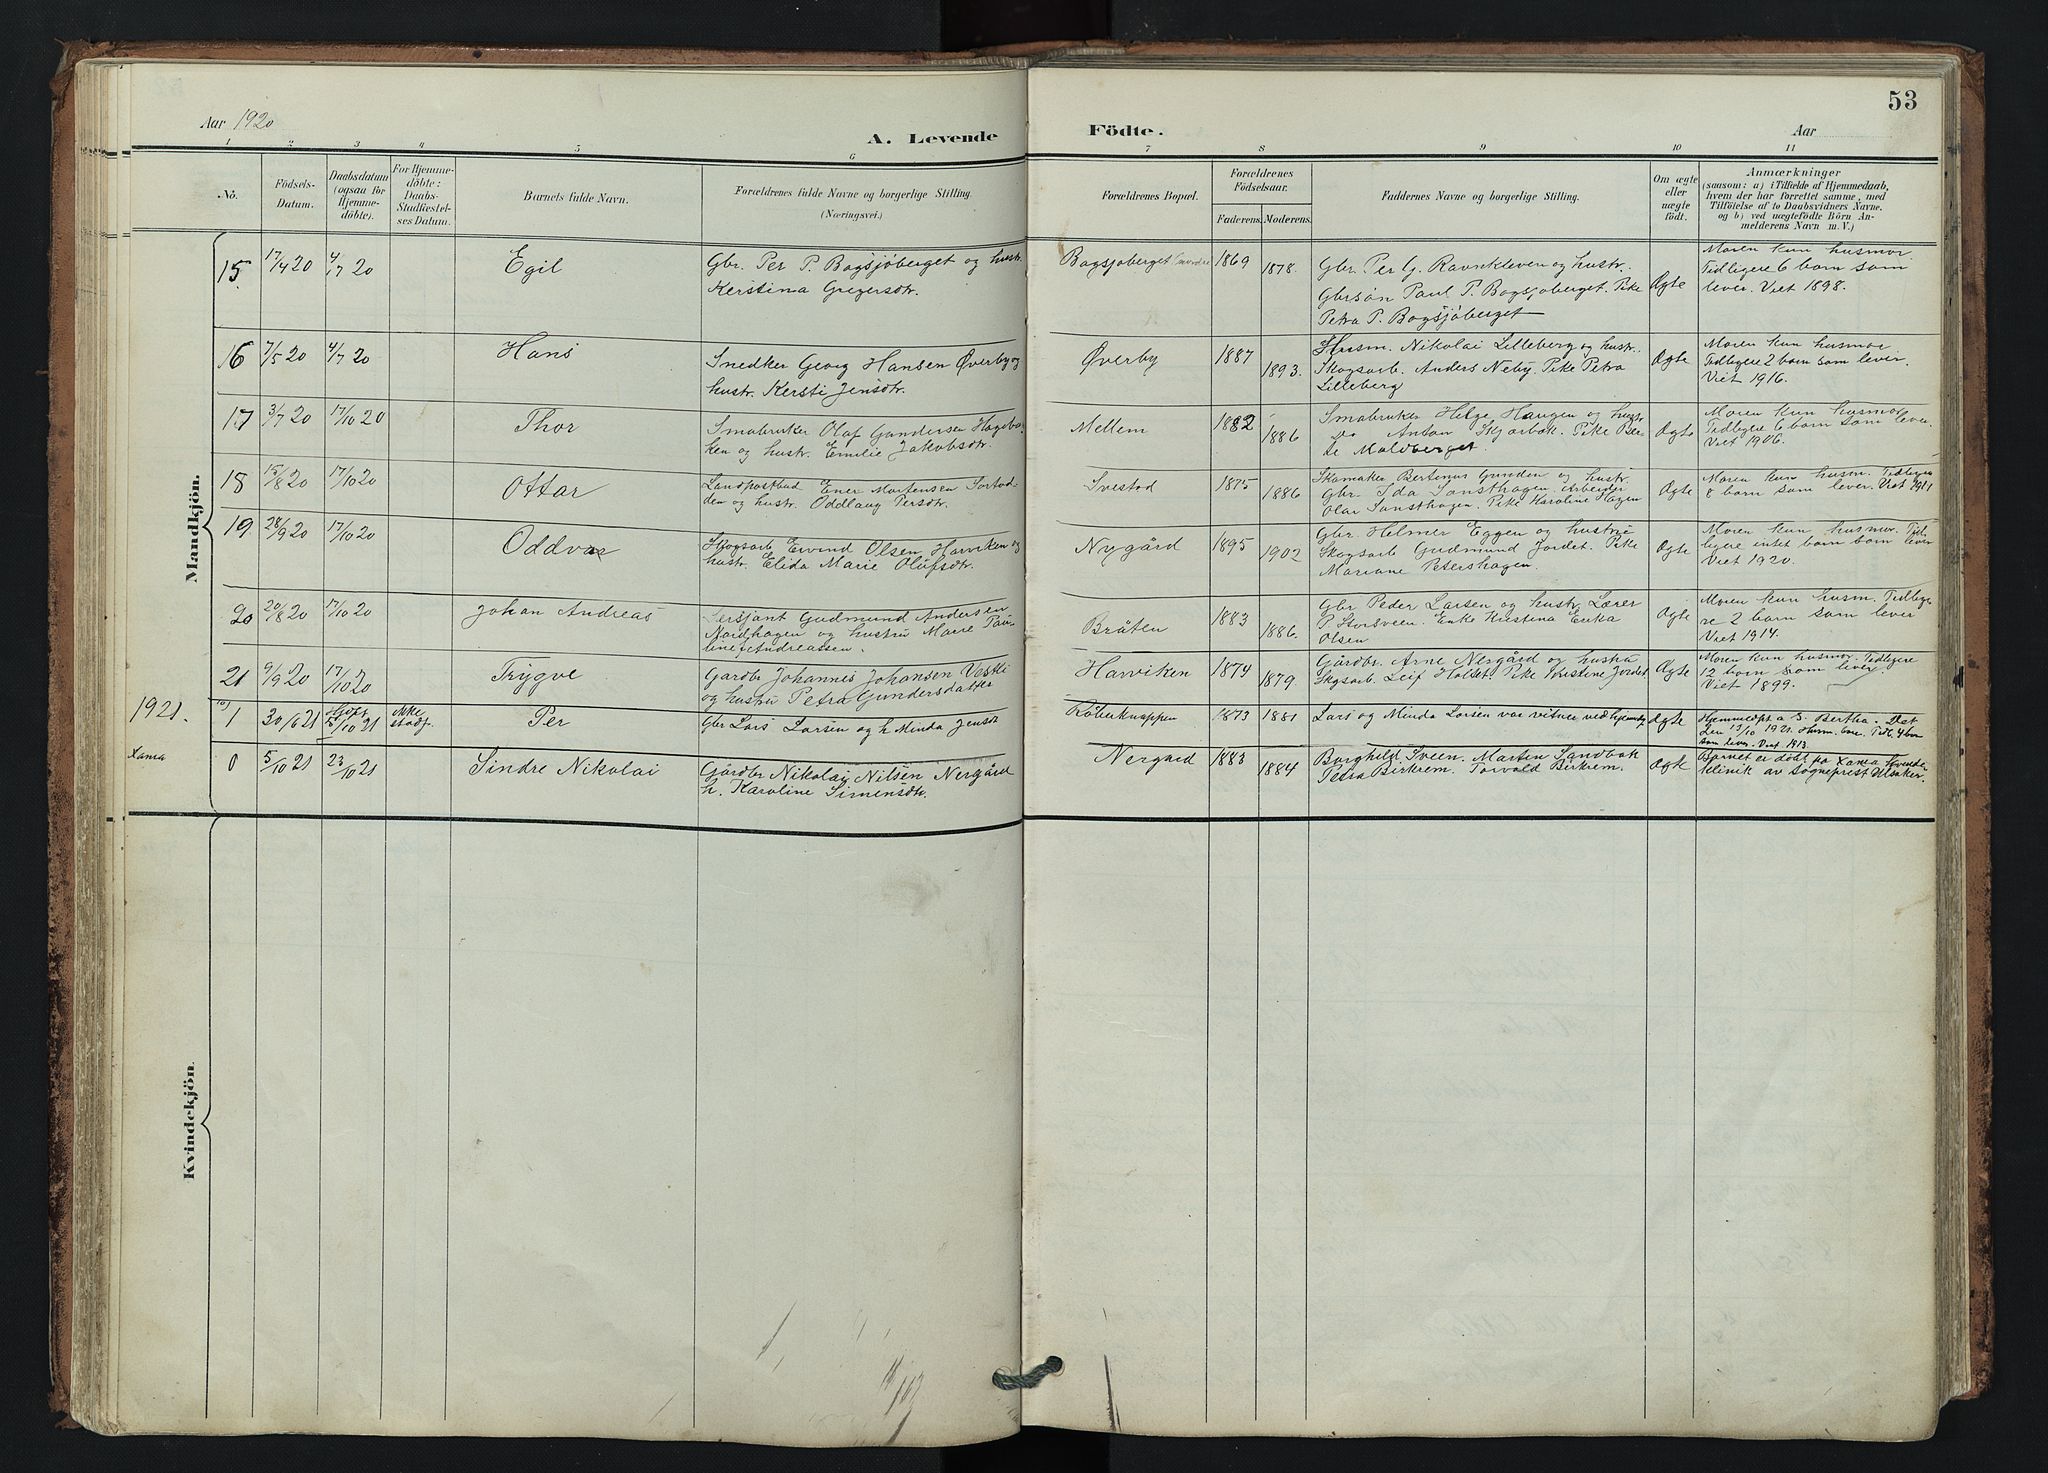 53
Aar 1920
A. Levende
Födte.
Aar
1 2 3 4 5 6 7 8 9 10 11
No.
Födsels-
Datum.
Daabsdatum
(ogsaa for
Hjemme-
döbte).
For Hjemme-
döbte:
Daabs-
Stadfæstel-
ses Datum.
Barnets fulde Navn.
Forældrenes fulde Navne og borgerlige Stilling.
(Næringsvei.)
Forældrenes Bopæl.
Forældrenes
Födselsaar.
Faderens. Moderens.
Faddernes Navne og borgerlige Stilling.
Om ægte
eller
uægte
födt.
Anmærkninger
(saasom: a) i Tilfælde af Hjemmedaab,
hvem der har forrettet samme, med
Tilföielse af to Daabsvidners Navne,
og b) ved uægtefödte Börn An-
melderens Navn m. V.)
Mandkjön.
15 17/4 20 4/7 20 Egil
Gbr. Per P. Bogsjöberget og hustr.
Kerstina Gregersdtr.
Bogsjoberget 1869 1878.
Gbr. Per G. Ravnkleven og hustr.
Gbrsön Paul P. Bogsjoberget. Pike
Petra P. Bogsjöberget
Ægte
Moren kun husmor.
Tidligere 6 born som
lever. Viet 1898.
16 7/5 20 4/7 20 Hans
Snedker Georg Hansen Øverby og
hustr. Kersti Jensdtr.
Øverby 1887 1893.
Husm. Nikolai Lilleberg og hustr.
Skogsarb. Anders Neby. Pike Petra
Lilleberg
Ægte
Moren kun husmor
Tidligere 2 born som lever.
Viet 1916.
17 3/7 20 17/10 20 Thor
Smabruker Olaf Gundersen Hageba-
ken og hustr. Emilie Jakobsdtr.
Mellem 1882 1886
Smabruker Helge Haugen og hustr.
Do Anton Skjærbæk. Pike Ber-
te Moldberget.
Ægte
Moren kun husmor
Tidligere 6 born som lever.
Viet 1906.
18 15/8 20 17/10 20 Ottar
Landpostbud Ener Mortensen Sortod-
den og hustr. Oddlaug Persdtr.
Svestad 1875 1886
Skomaker Bertinus Grunden og hustr.
Gbr. Ida Tansthagen. Arbeider
Olav Tansthagen. Pike Karoline Hagen
Ægte
Moren kun husm. Tidligere
8 born som lever. Viet 1911
19 28/9 20 17/10 20 Oddvar
Skogsarb Eivind Olsen Harviken og
hustr. Elida Marie Olufsdtr.
Nygård 1895 1902
Gbr. Helmer Eggen og hustru
Skogsarb Gudmund Jordet. Pike
Mariane Petershagen.
Ægte
Moren kun husmor. Tid-
ligere intet born som lever
Viet 1920.
20 20/8 20 17/10 20 Johan Andreas
Sersjant Gudmund Andersen
Nordhagen og hustru Marie Pau-
line Andreassen.
Bråten 1883 1886.
Gbr Peder Larsen og hustr. Lærer
P. Storsveen. Enke Kristina Erika
Olsen
Ægte
Moren kun husm. Tidlige-
re 2 born som lever
Viet 1914.
21 9/9 20 17/10 20 Trygve
Gardbr Johannes Johansen Vestli
og hustru Petra Gundersdatter
Harviken 1874 1879.
Gårdbr. Arne Nergård og hustru
Skogsarb. Leif Holset. Pike Kristine Jordet
Ægte
Moren kun husmor. Tidligere
12 born som lever.
Viet 1899.
1921.
1 30/6 21 Hjdpt 13/10 21 ikke
stadf. Per
Gbr Lars Larsen og h Minda Jensdtr
Röberknappen 1873 1881
Lars og Minda Larsen var vitner ved hjemdp
Ægte
Hjemmedöpt a S. Bertha.
Den 13/10 1921.
som lever. Viet 1913.
Xania
0 5/10 21 23/10 21 Sindre Nikolai
Gårdbr Nikolai Nilsen Nergård
h. Karoline Simensdtr.
Nergard 1883 1884
Borghild Sveen. Marten Sandbak
Petra Birkrem. Torvald Birkrem.
Ægte
Barnet er döbt pa Xania Kvinde-
klinik av Sogneprest
Kvindekjön.